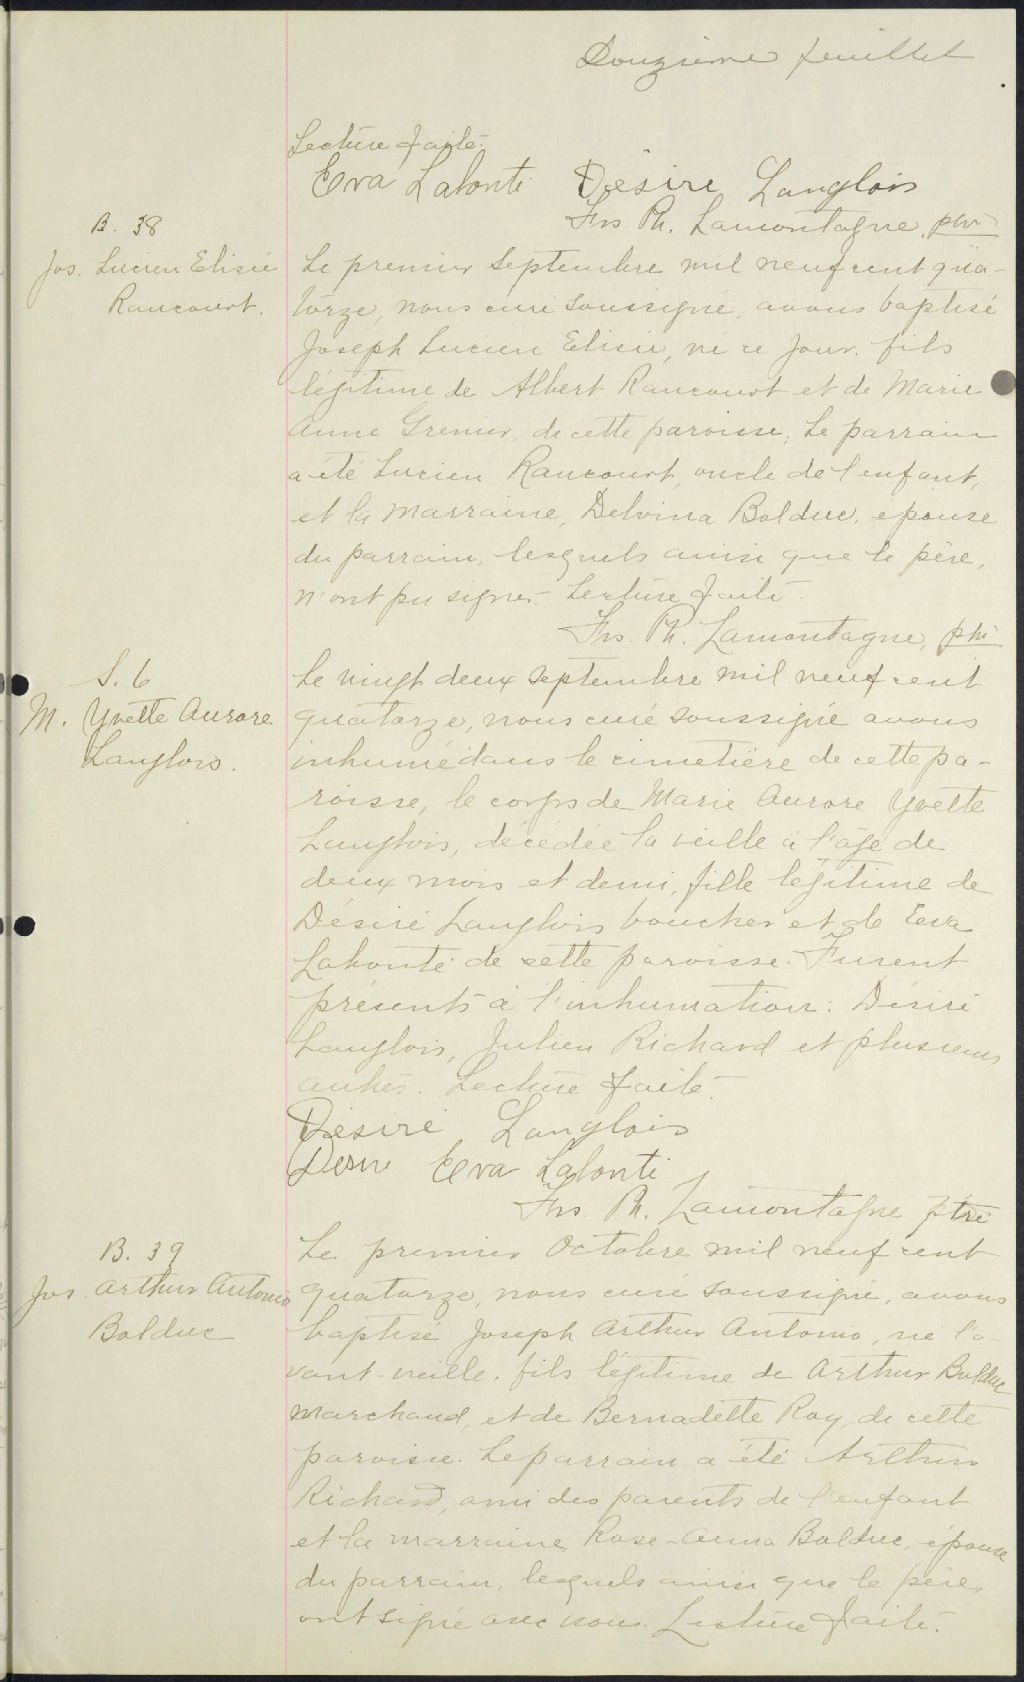 Douzième feuillet
Lecture faite.
Eva Labonté Désiré Langlois
Frs. Ph. Lamontagne, ptre
B. 38
Jos. Lucien Elisée
Rancourt.
Le premier Septembre mil neuf cent qua-
torze, nous curé soussigné, avons baptisé
Joseph Lucien Elisée, né ce jour, fils
légitime de Albert Rancourt et de Marie
Anne Grenier, de cette paroisse; Le parrain
a été Lucien Rancourt, oncle de l'enfant,
et la marraine, Delvina Bolduc, épouse
du parrain, lesquels ainsi que le père,
n'ont pu signer. Lecture faite.
Frs. Ph. Lamontagne, ptre
S. 6
M. Yvette Aurore
Langlois.
Le vingt deux septembre mil neuf cent
quatorze, nous curé soussigné avons
inhumé dans le cimetière de cette pa-
roisse, le corps de Marie Aurore Yvette
Langlois, décédée la veille à l'âge de
deux mois et demi, fille légitime de
Désiré Langlois boucher et de Eva
Labonté de cette paroisse. Furent
présents à l'inhumation: Désiré
Langlois, Julien Richard et plusieurs
autres. Lecture faite.
Désiré Langlois
Désiré Eva Labonté
Frs. Ph. Lamontagne ptre
B. 39
Jos. Arthur Antonio
Bolduc
Le premier Octobre mil neuf cent
quatorze, nous curé soussigné, avons
baptisé Joseph Arthur Antonio, né l'a-
vant-veille, fils légitime de Arthur Bolduc
marchand, et de Bernadette Roy, de cette
paroisse. Le parrain a été Arthur
Richard, ami des parents de l'enfant
et la marraine, Rose-Anna Bolduc, épouse
du parrain, lesquels ainsi que le père,
ont signé avec nous. Lecture faite.